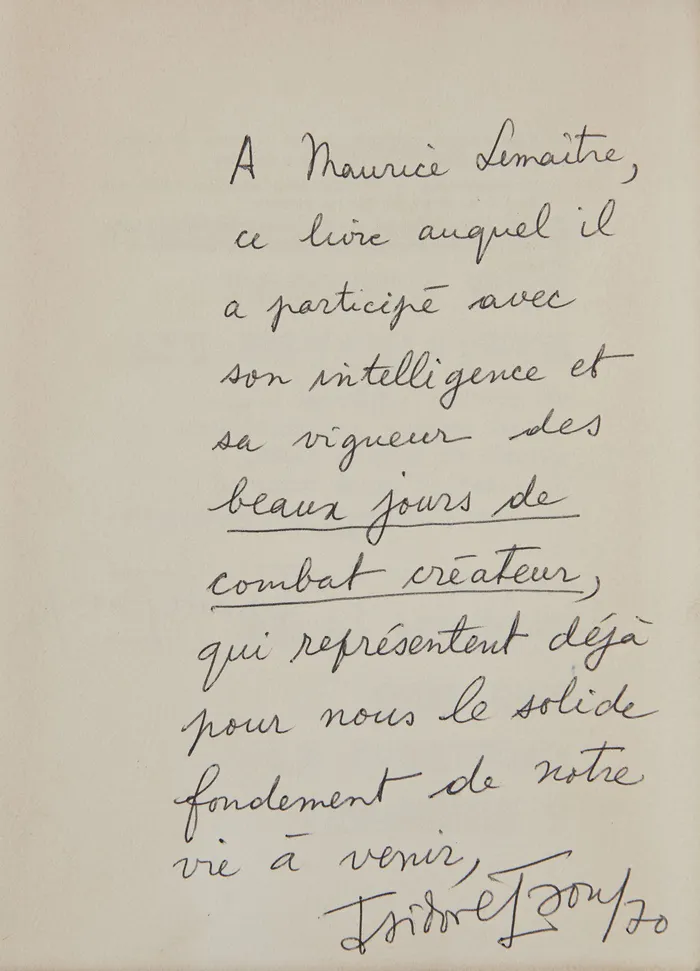 A Maurice Lemaître,
ce livre auquel il
a participé avec
son intelligence et
sa vigueur des
beaux jours de
combat créateur,
qui représentent déjà
pour nous le solide
fondement de notre
vie à venir,
Isidore Isou/70